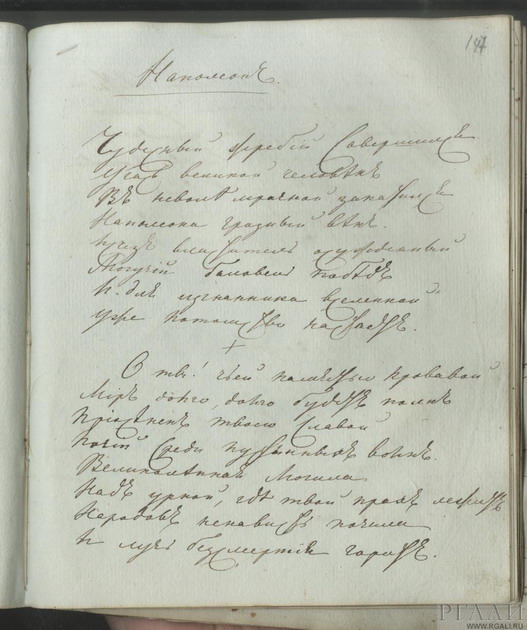 141
Наполеонъ.
Чудесный жребій Совершился
Угасъ великой человѣкъ
Въ неволѣ мрачной закатился
Наполеона грозный вѣкъ.
изчезъ властитель осужденный
Могучій баловень побѣдъ
И для изгнанника вселенной
уже потомство настаетъ.
О ты! чьей памятью кровавой
Міръ долго, долго будетъ полнъ
Пріосѣненъ твоею славой
почій Среди пустынныхъ волнъ.
Великолѣпная Могила
Надъ урной, гдѣ твой прахъ лежитъ
Народовъ ненависть почила
И лучь безсмертія горитъ.
РГАЛИ
WWW.RGALI.RU